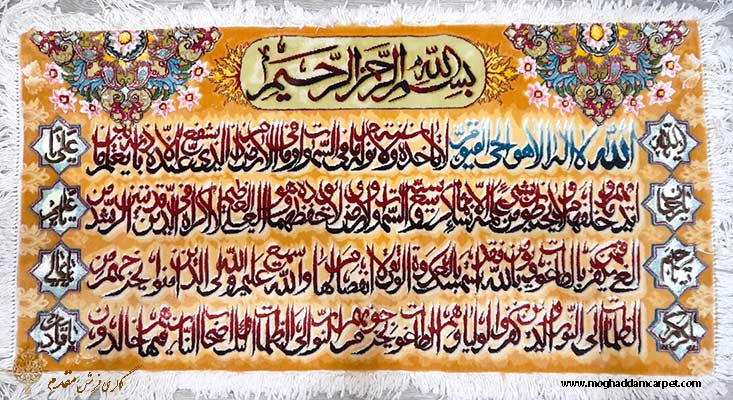 بسم الله الرحمن الرحیم
یا الله الله لا اله الا هو الحی القیوم لا تاخذه سنة ولا نوم له ما فی السموات وما فی الارض من ذا الذی یشفع عنده الا باذنه یعلم ما بین
یا رحمن ایدیهم وما خلفهم ولا یحیطون بشیء من علمه الا بما شاء وسع کرسیه السموات والارض ولا یؤده حفظهما وهو العلی العظیم لا اکراه فی الدین قد تبین الرشد من
یا رحیم الغی فمن یکفر بالطاغوت ویؤمن بالله فقد استمسک بالعروة الوثقی لا انفصام لها والله سمیع علیم الله ولی الذین آمنوا یخرجهم من
یا کریم الظلمات الی النور والذین کفروا اولیاؤهم الطاغوت یخرجونهم من النور الی الظلمات اولئک اصحاب النار هم فیها خالدون
گالری فرش مقدم
www.moghaddamcarpet.com